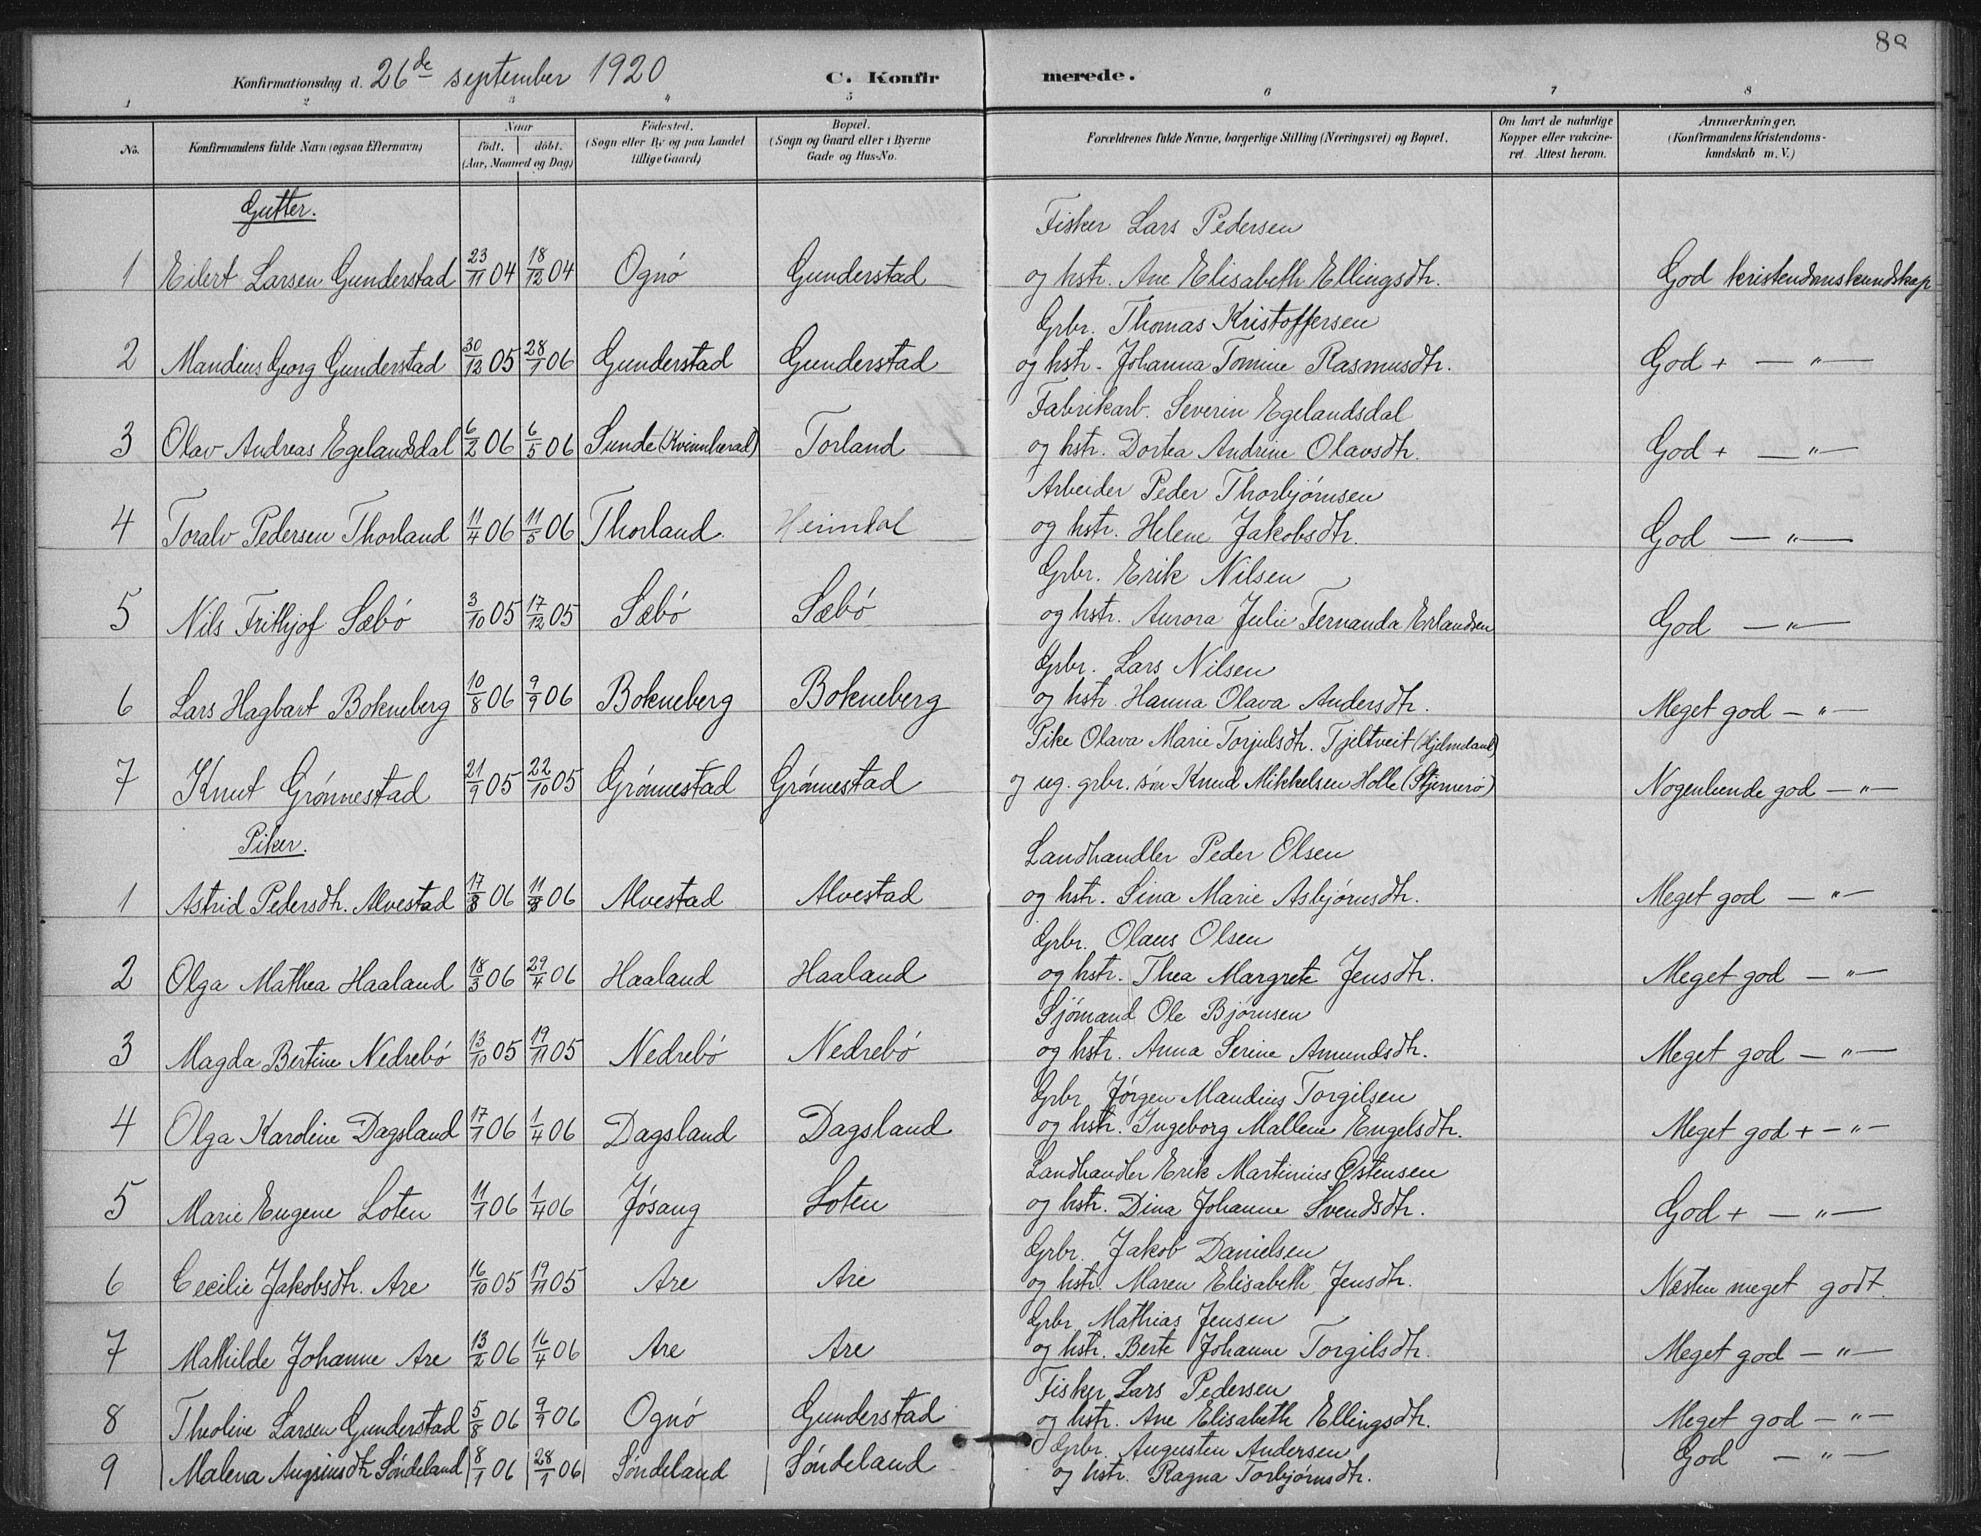 88
Konfirmationsdag d. 26de september 1920 C. Konfirmerede.
1 2 3 4 5 6 7 8
No. Konfirmandens fulde Navn (ogsaa Efternavn) Naar født. døbt. (Aar, Maaned og Dag) Fødested. (Sogn eller By og paa Landet tillige Gaard) Bopæl. (Sogn og Gaard eller i Byerne Gade og Hus-No. Forældrenes fulde Navne, borgerlige Stilling (Næringsvei) og Bopæl. Om havt de naturlige Kopper eller vakcineret. Attest herom. Anmærkninger. (Konfirmandens Kristendomskundskab m. V.)
Gutter.
Fisker Lars Pedersen
1 Eilert Larsen Gunderstad 23/11 04 18/12 04 Ognö Gunderstad og hstr. Ane Elisabeth Ellingsdtr. God kristendomskundskap
Grbr. Thomas Kristoffersen
2 Mandius Georg Gunderstad 30/12 05 28/1 06 Gunderstad Gunderstad og hstr. Johanna Tomine Rasmusdtr. God + — " —
Fabrikarb. Severin Egelandsdal
3 Olav Andreas Egelandsdal 6/2 06 6/5 06 Sunde (Kvinnherad) Torland og hstr. Dortea Andrine Olavsdtr. God + — " —
Arbeider Peder Thorbjørnsen
4 Toralv Pedersen Thorland 11/4 06 11/5 06 Thorland. Heimdal og hstr. Helene Jakobsdtr. God — " —
Grbr. Erik Nilsen
5 Nils Frithjof Sæbö 3/10 05 17/12 05 Sæbö Sæbö og hstr. Aurora Julie Fernanda Erlandsen God — " —
Grbr. Lars Nilsen
6 Lars Hagbart Bokneberg 10/8 06 9/9 06 Bokneberg Bokneberg og hstr. Hanna Olava Andersdtr. Meget god — " —
Pike Olava Marie Torjulsdtr. Tjeltveit (Hjelmeland)
7 Knut Grönnestad 21/9 05 22/10 05 Grönnestad Grönnestad og ug. grbr. sön Knud Mikkelsen Holle (Stjernerø) Nogenlunde god — " —
Piker.
Landhandler Peder Olsen
1 Astrid Pedersdtr. Alvestad 17/8 06 11/ 06 Alvestad Alvestad og hstr. Sina Marie Asbjørnsdtr. Meget god — " —
Grbr. Olaus Olsen
2 Olga Mathea Haaland 18/3 06 29/4 06 Haaland Haaland og hstr. Thea Margrete Jensdtr. Meget god — " —
Sjömand Ole Bjørnsen
3 Magda Bertine Nedrebö 13/10 05 19/11 05 Nedrebö Nedrebö og hstr. Anna Serine Amundsdtr. Meget god — " —
Grbr. Jörgen Mandius Torgilsen
4 Olga Karoline Dagsland 17/1 06 1/4 06 Dagsland Dagsland og hstr. Ingeborg Mallene Engelsdtr. Meget god + — " —
Landhandler Erik Martinius Östensen
5 Marie Eugene Loten 11/1 06 1/4 06 Jösang Loten og hstr. Dina Johanne Svendsdtr. God + — " —
Grbr. Jakob Danielsen
6 Cecilie Jakobsdtr. Are 16/10 05 19/11 05 Are Are og hstr. Maren Elisabeth Jensdtr. Næsten meget godt.
Grbr. Mathias Jensen
7 Mathilde Johanne Are 13/2 06 16/4 06 Are Are og hstr. Berte Johanne Torgilsdtr. Meget god — " —
Fisker Lars Pedersen
8 Theoline Larsen Gunderstad 5/8 06 9/9 06 Ognö Gunderstad og hstr. Ane Elisabeth Ellingsdtr. Meget god — " —
Grbr. Augusten Andersen
9 Malena Söndeland 8/1 06 28/1 06 Söndeland Söndeland og hstr. Ragna Torbjørnsdtr. God — " —